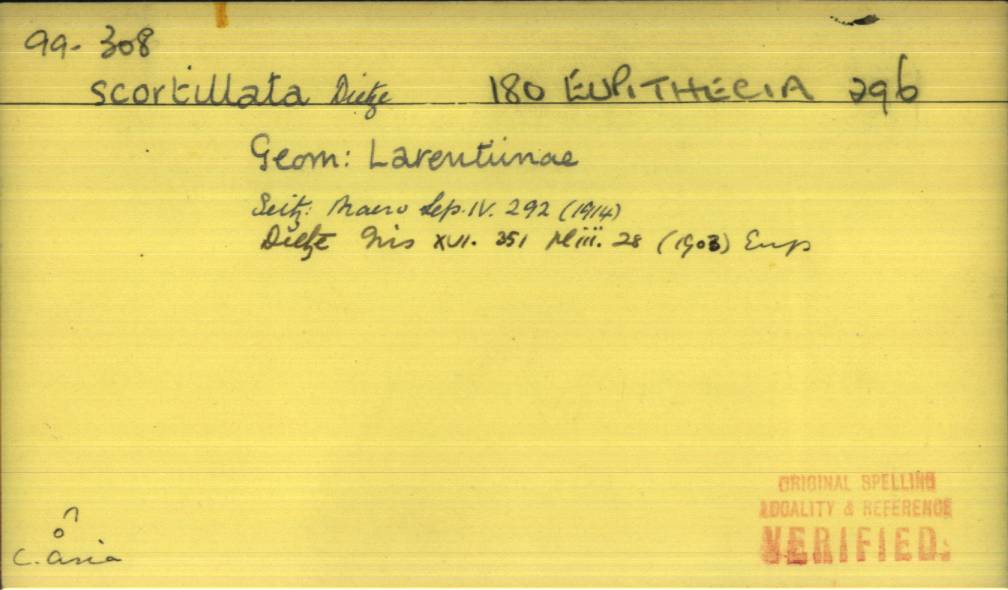 99- 308
scortillata Dietze 180 EUPITHECIA 296
Geom: Larentiinae
Seitz: Macro Lep. IV. 292 (1914)
Dietze Iris XVI. 351 pl iii. 28 (1903) Eup
C. Asia
ORIGINAL SPELLING
LOCALITY & REFERENCE
VERIFIED.